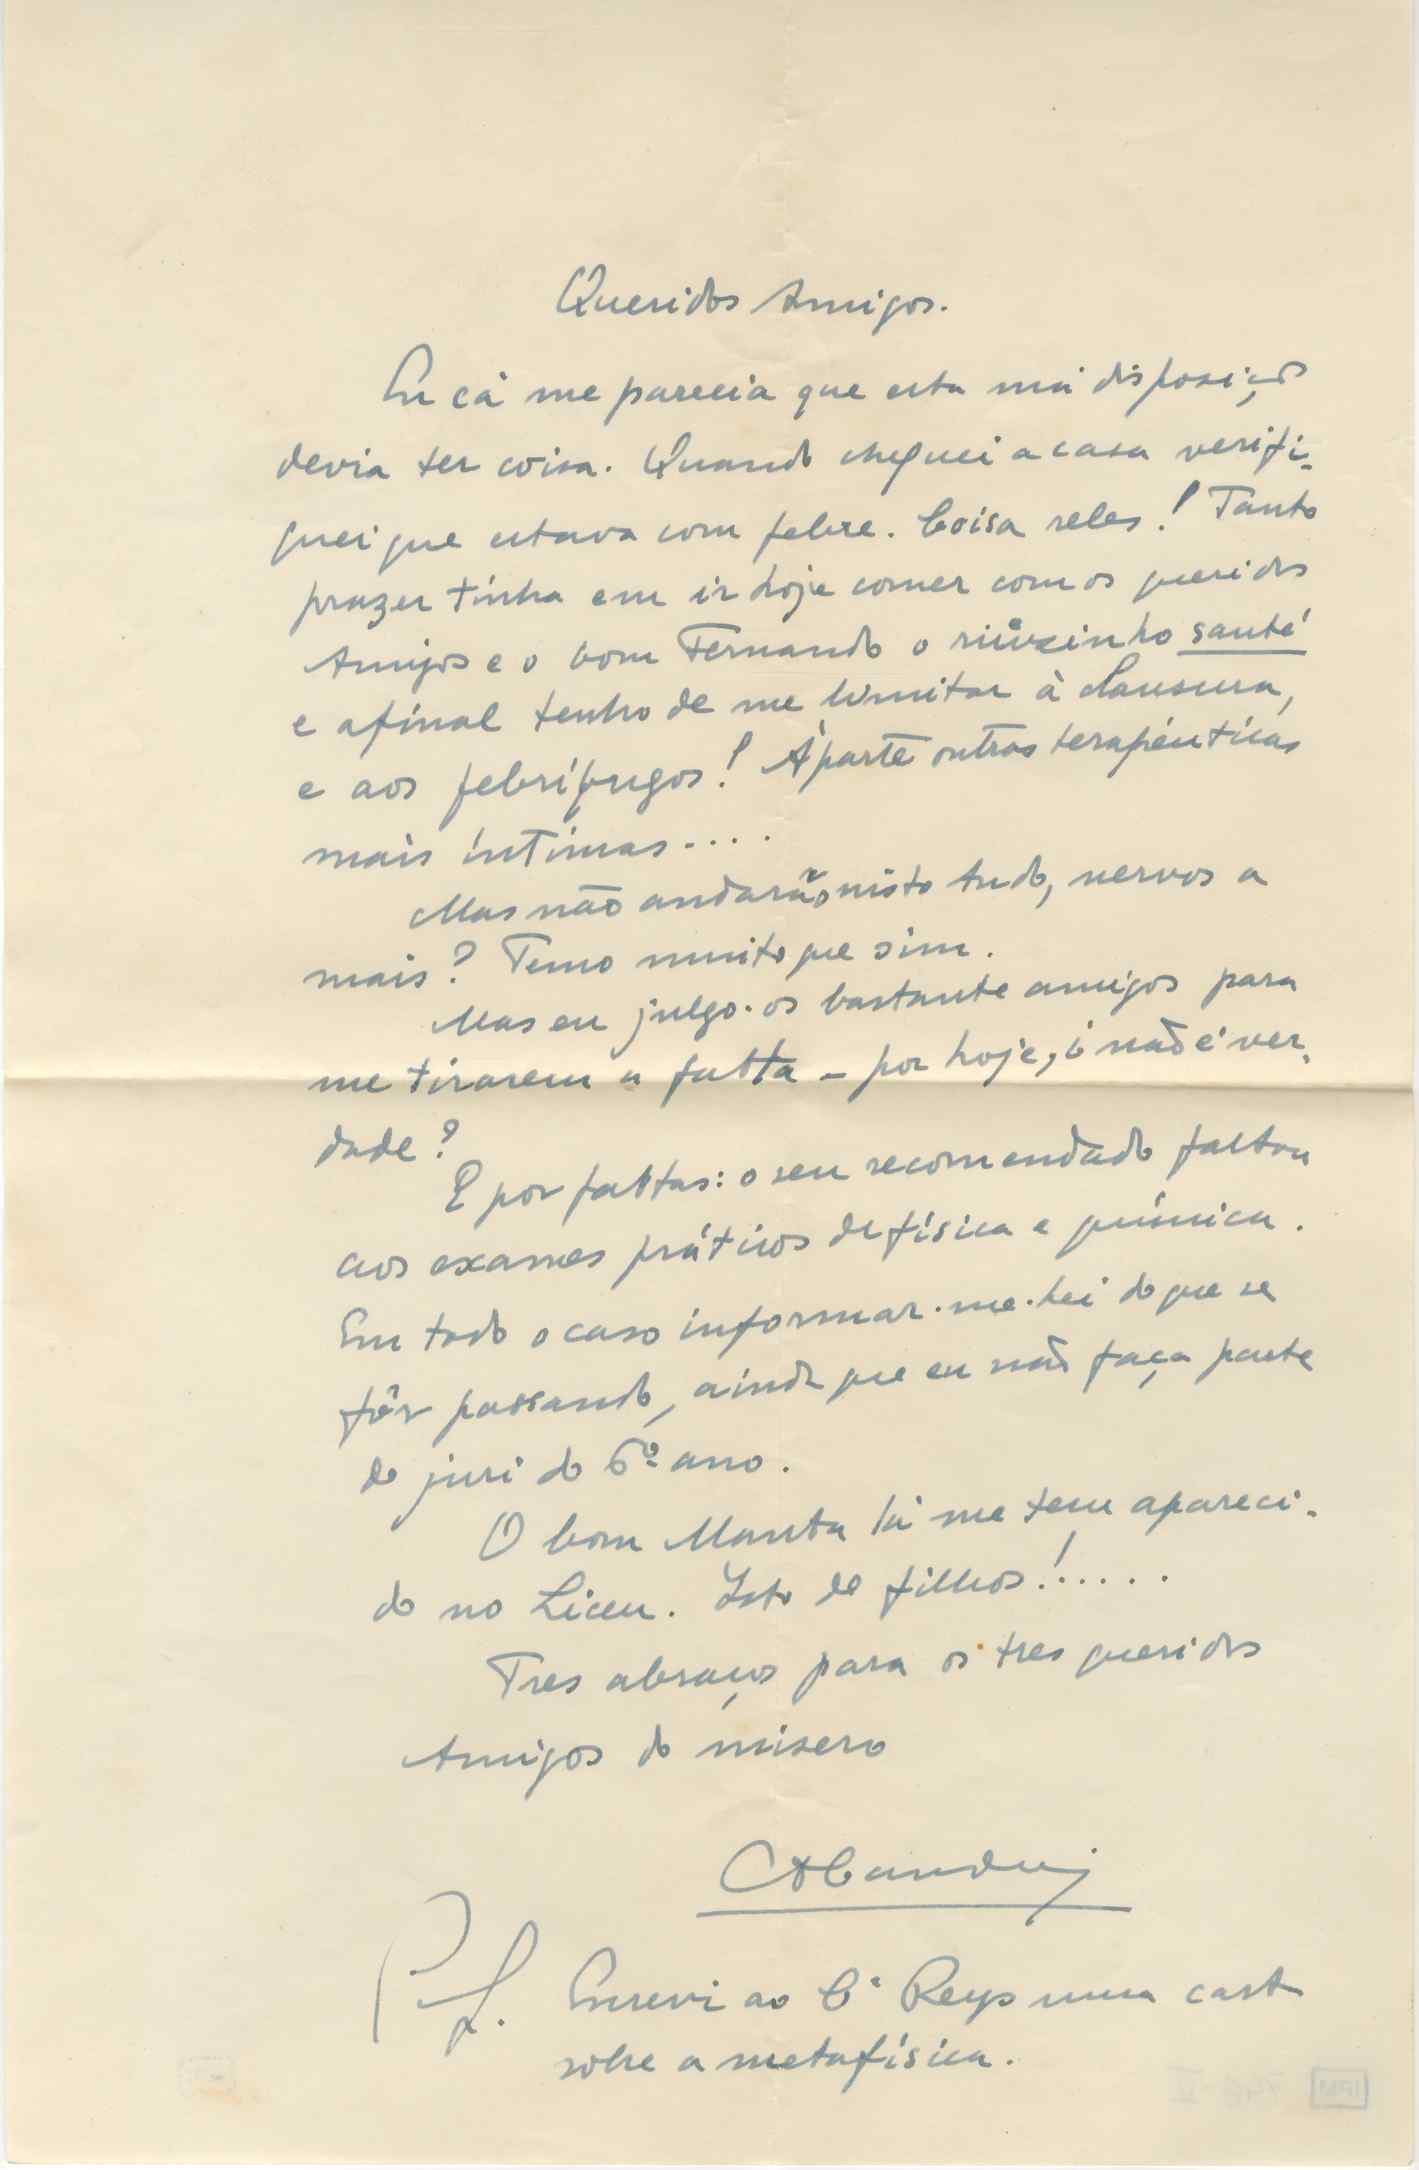 Queridos Amigos.
Eu cá me parecia que esta má disposição
devia ter coisa. Quando cheguei a casa verifi-
quei que estava com febre. Coisa reles! Tanto
prazer tinha em ir hoje comer com os queridos
Amigos e o bom Fernando o rinzinho sauté
e afinal tenho de me limitar à clausura,
e aos febrífugos! Àparte outras terapêuticas
mais íntimas....
Mas não andarão, nisto tudo, nervos a
mais? Temo muito que sim.
Mas eu julgo-os bastante amigos para
me tirarem a falta - por hoje, não é ver-
dade?
E por faltas: o seu recomendado faltou
aos exames práticos de física e química.
Em todo o caso informar-me-hei do que se
fôr passando, ainda que eu não faça parte
do juri do 6º ano.
O bom Manta lá me tem apareci-
do no Liceu. Isto de filhos!......
Tres abraços para os tres queridos
Amigos do misero
P.S. Escrevi ao Reys uma carta
sobre a metafísica.
IPM